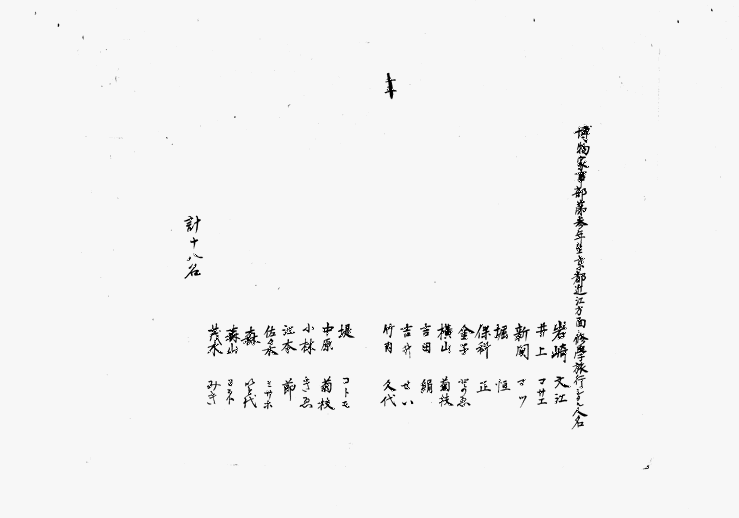 博物家事部第参年生京都近江方面修學旅行人名
岩崎 文江
井上 マサエ
新関 マツ
堀 恒
保科 正
金子
横山 菊枝
吉田 絹
吉井 せい
竹内 久代
堤 コトモ
中原 菊枝
小林 きゑ
辻本 節
佐久木 ミサホ
森 代
森山
茂木 みき
計十八名